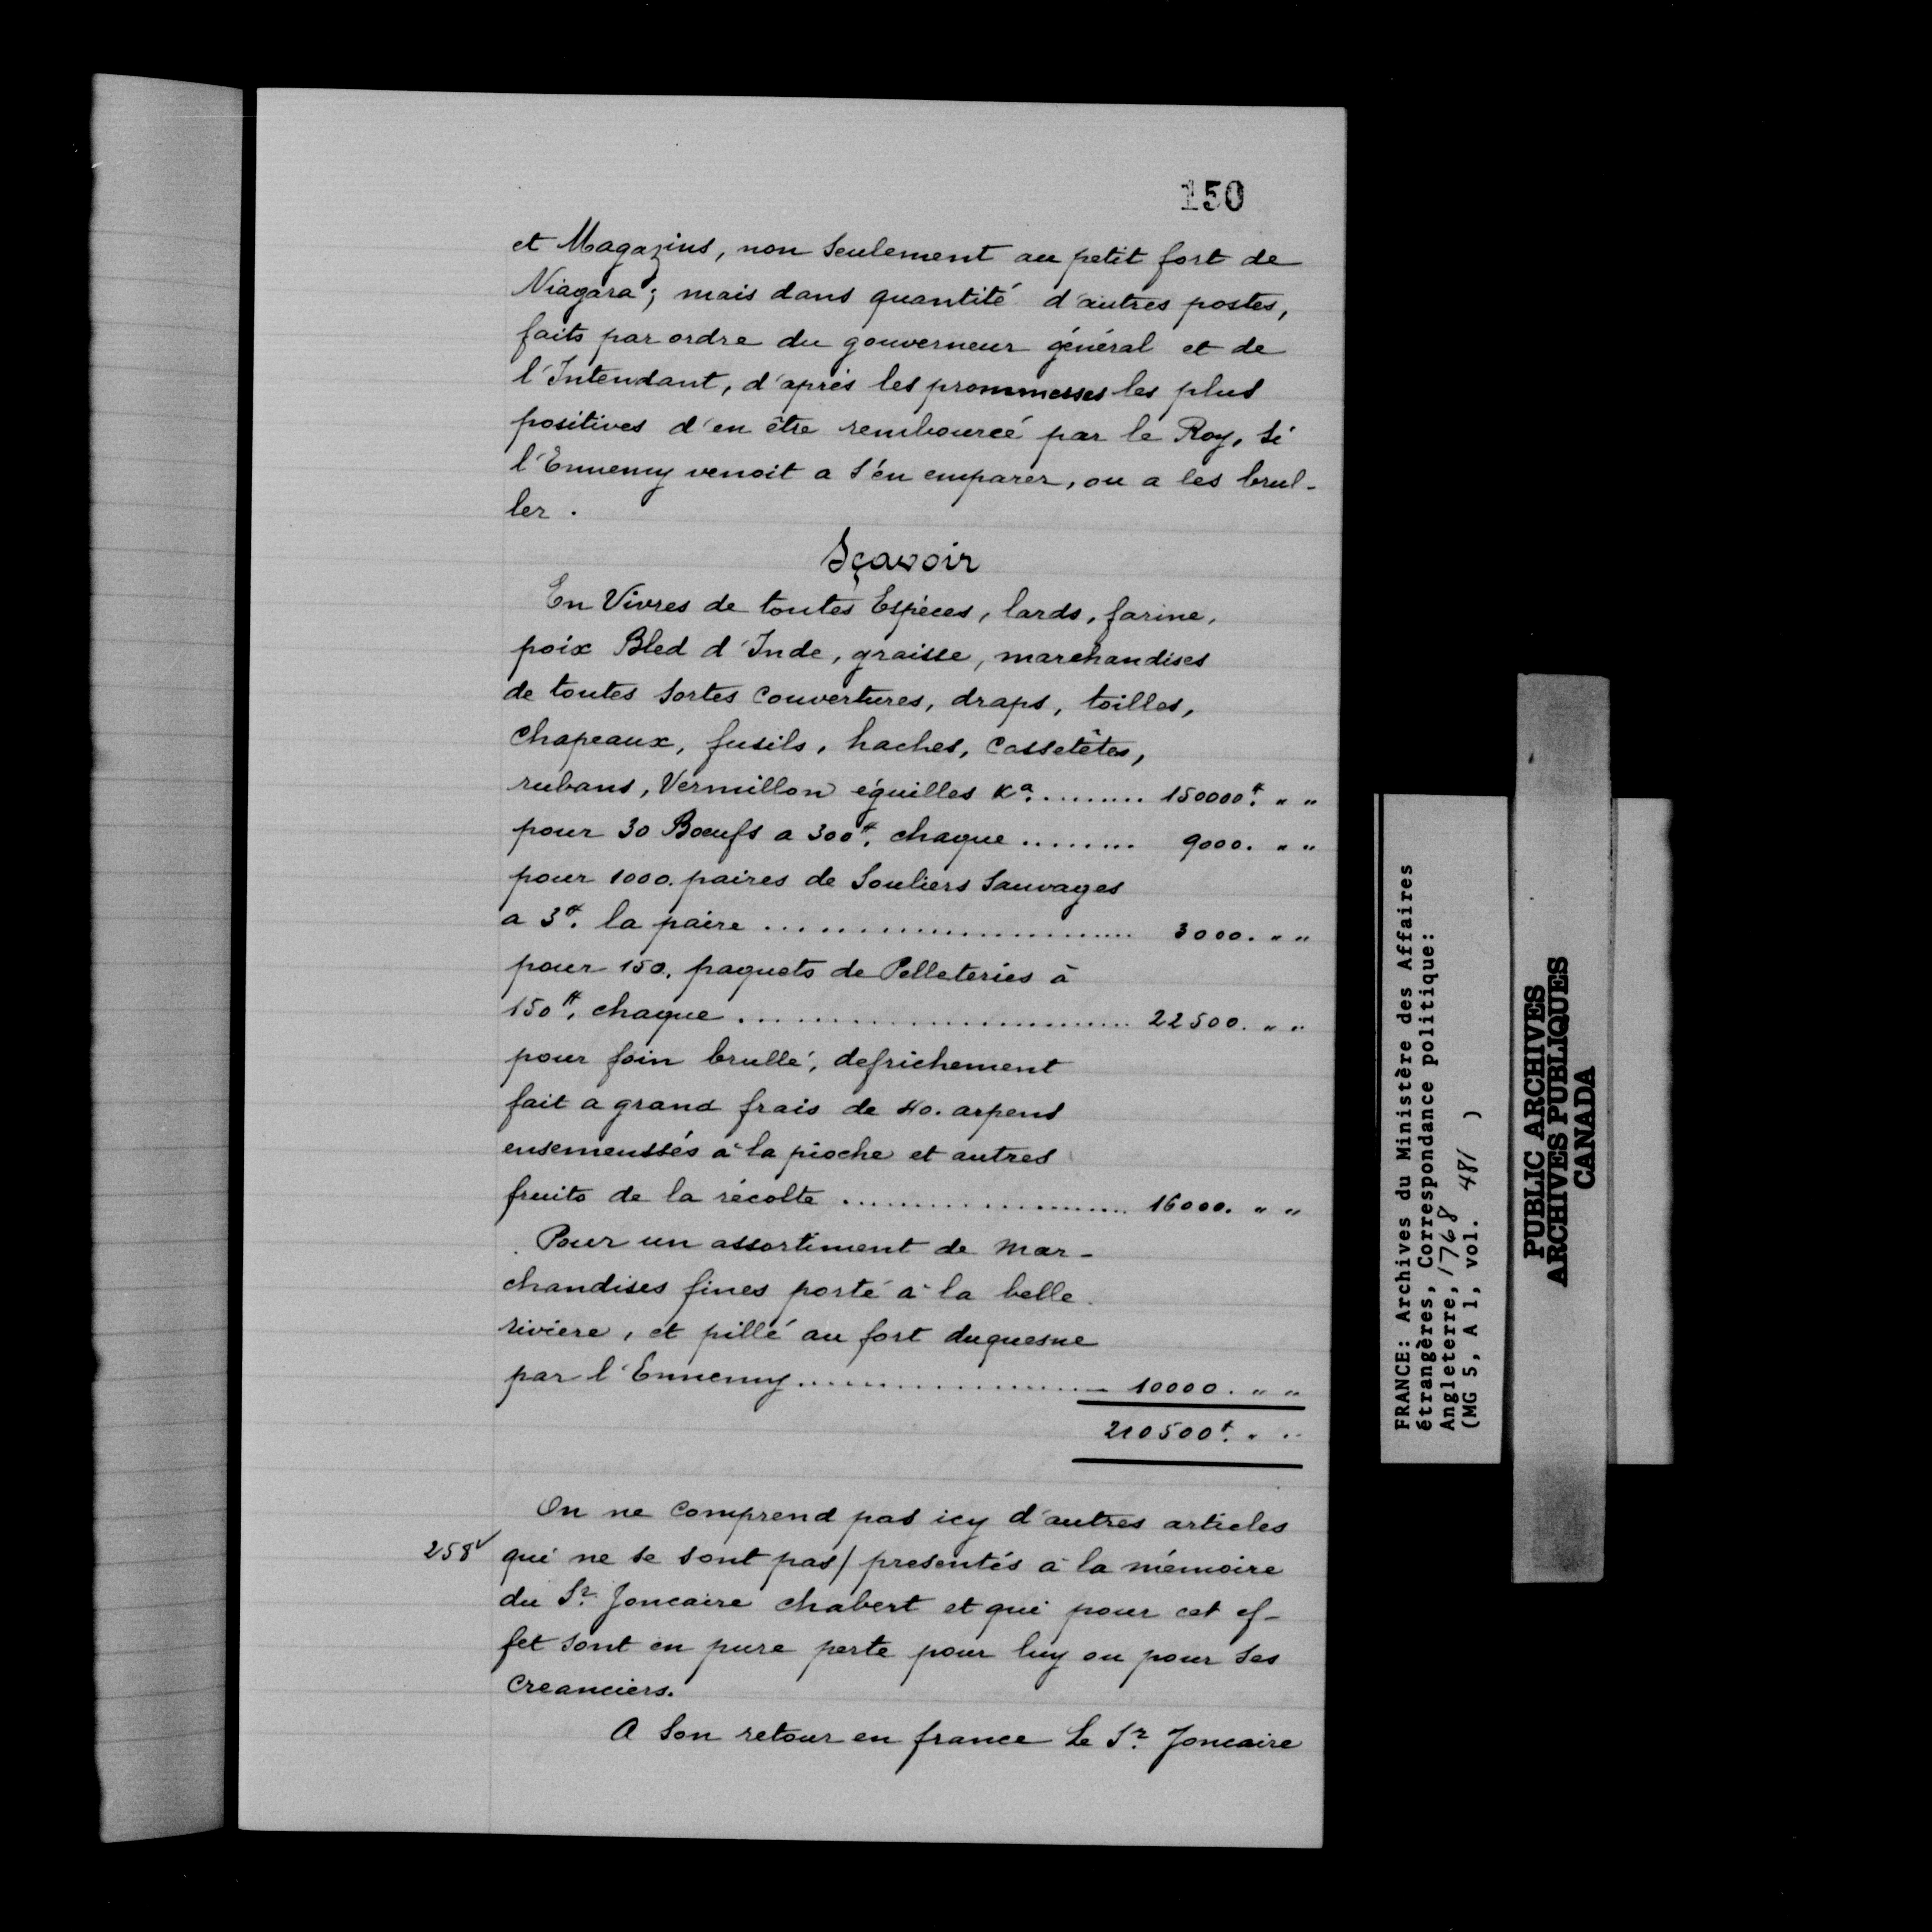 150
et Magazins, non seulement au petit fort de
Niagara; mais dans quantité d'autres postes,
faits par ordre du gouverneur général et de
l'Intendant, d'après les prommesses les plus
positives d'en être rembourcé par le Roy, si
l'Ennemy venoit a s'en emparer, ou a les brul-
ler.
Sçavoir
En Vivres de toutes Espèces, lards, farine,
poix Bled d'Inde, graisse, marchandises
de toutes sortes couvertures, draps, toilles,
chapeaux, fusils, haches, cassetêtes,
rubans, Vermillon éguilles &a. ......... 150000₶. " "
pour 30 Bœufs a 300₶. chaque ........ 9000. " "
pour 1000. paires de Souliers Sauvages
a 3₶. la paire ........................... 3000. " "
pour 150. paquets de Pelleteries à
150₶. chaque ............................ 22500. " "
pour foin brullé, defrichement
fait a grand frais de 40. arpens
ensemenssés à la pioche et autres
fruits de la récolte ..................... 16000. " "
Pour un assortiment de mar-
chandises fines porté à la belle
riviere, et pillé au fort duquesne
par l'Ennemy ...................... 10000. " "
210500₶. " "
On ne comprend pas icy d'autres articles
258v qui ne se sont pas/ presentés à la mémoire
du Sr. Joncaire chabert et qui pour cet ef-
fet sont en pure perte pour luy ou pour ses
creanciers.
A son retour en france Le Sr. Joncaire
FRANCE: Archives du Ministère des Affaires
étrangères, Correspondance politique:
Angleterre, 1768
(MG 5, A 1, vol. 481 )
PUBLIC ARCHIVES
ARCHIVES PUBLIQUES
CANADA